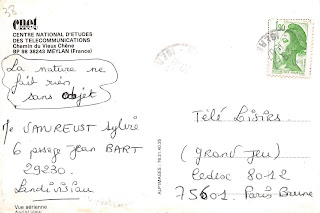 38
cnet
CENTRE NATIONAL D'ETUDES
DES TELECOMMUNICATIONS
Chemin du Vieux Chêne
BP 98 38243 MEYLAN (France)
La nature ne
fait rien
sans objet
Me VANREUST Sylvie
6 passage Jean BART
29230.
Landivisiau
Télé Loisirs.
(GRAND Jeu)
Cedexe 8012
75601. Paris Brune
Vue aérienne